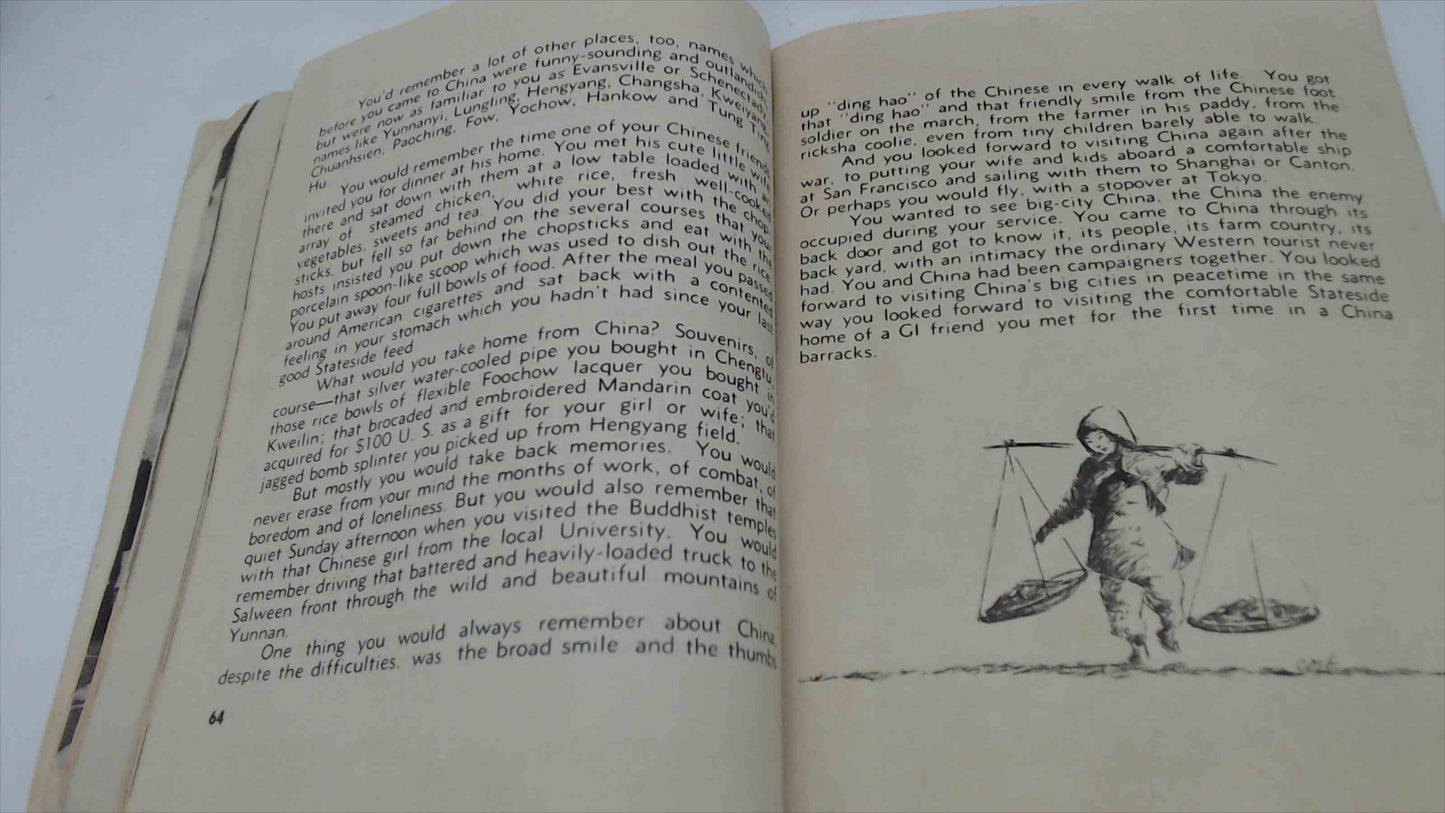 You'd remember a lot of other places, too, names which
before you came to China were funny-sounding and outlandish,
but were now as familiar to you as Evansville or Schenectady,
names like Yunnanyi, Lungling, Hengyang, Changsha, Kweiyang,
Chuanhsien, Paoching, Fow, Yochow, Hankow and Tung Ting
Hu.
You would remember the time one of your Chinese friends
invited you for dinner at his home. You met his cute little wife
there and sat down with them at a low table loaded with an
array of steamed chicken, white rice, fresh well-cooked
vegetables, sweets and tea. You did your best with the chop-
sticks, but fell so far behind on the several courses that your
hosts insisted you put down the chopsticks and eat with the
porcelain spoon-like scoop which was used to dish out the rice
You put away four full bowls of food. After the meal you passed
around American cigarettes and sat back with a contented
feeling in your stomach which you hadn't had since your last
good Stateside feed
What would you take home from China? Souvenirs, of
course—that silver water-cooled pipe you bought in Chengtu,
those rice bowls of flexible Foochow lacquer you bought in
Kweilin; that brocaded and embroidered Mandarin coat you'd
acquired for $100 U. S. as a gift for your girl or wife; that
jagged bomb splinter you picked up from Hengyang field.
But mostly you would take back memories. You would
never erase from your mind the months of work, of combat, of
boredom and of loneliness. But you would also remember that
quiet Sunday afternoon when you visited the Buddhist temples
with that Chinese girl from the local University. You would
remember driving that battered and heavily-loaded truck to the
Salween front through the wild and beautiful mountains of
Yunnan.
One thing you would always remember about China,
despite the difficulties, was the broad smile and the thumbs
64
up "ding hao" of the Chinese in every walk of life. You got
that "ding hao" and that friendly smile from the Chinese foot
soldier on the march, from the farmer in his paddy, from the
ricksha coolie, even from tiny children barely able to walk.
And you looked forward to visiting China again after the
war, to putting your wife and kids aboard a comfortable ship
at San Francisco and sailing with them to Shanghai or Canton.
Or perhaps you would fly, with a stopover at Tokyo.
You wanted to see big-city China, the China the enemy
occupied during your service. You came to China through its
back door and got to know it, its people, its farm country, its
back yard, with an intimacy the ordinary Western tourist never
had. You and China had been campaigners together. You looked
forward to visiting China's big cities in peacetime in the same
way you looked forward to visiting the comfortable Stateside
home of a GI friend you met for the first time in a China
barracks.